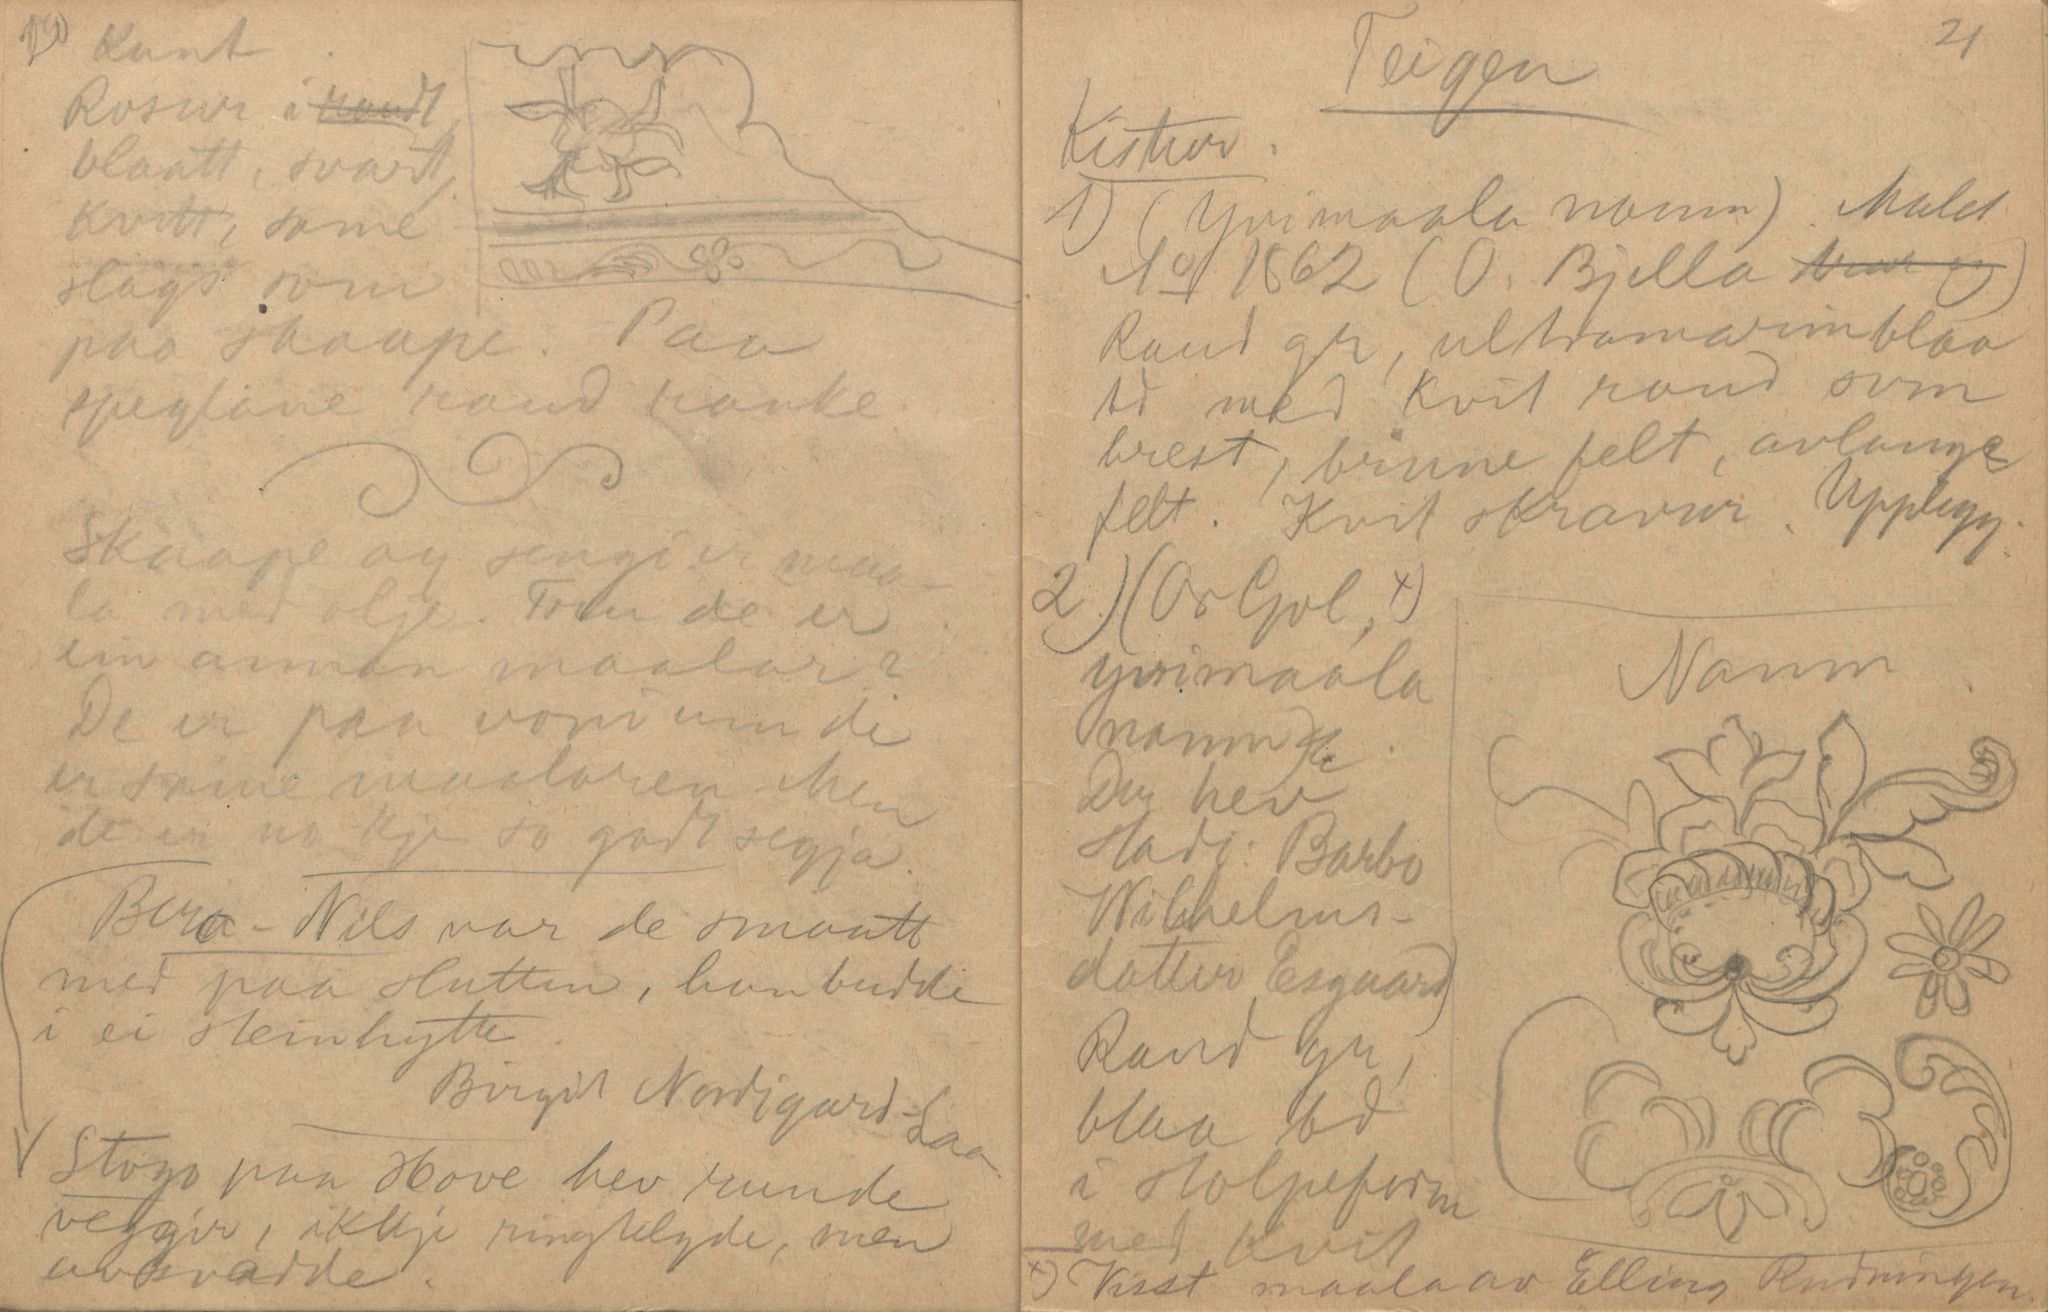 Kant
Rosur i raudt,
blaatt, svart,
kvitt, same
slags som
paa skaape. Paa
speglane raud ranke
Skaape og sengi er maa-
la med olje. Trur de er
ein annan maalar?
De er paa voni um di
er same maalaren. Men
de er no kje so godt segja.
Bera-Nils var de smaatt
med paa slutten, han budde
i ei steinhytte
Birgit Nordigard-Laa
Stogo paa Hove hev runde
veggir, ikkje ringklyvde, men
avsvadde.
21
Teigen
Kistur.
1) (Yvimaala namn). Malet
No 1862 (O. Bjella
Raud gr, ultramarinblaa
bd med kvit rand som
brest, brune felt, avlange
felt. Kvit skravur. Upplegg.
2) (Or Gol, x)
yvimaala
namn
Der hev
stade: Barbo
Wilhelms-
datter Esgaard)
Raud gr,
blaa bd
i stolpeform
med kvit
Namn
x) Visst maala av Elling Rudningen.